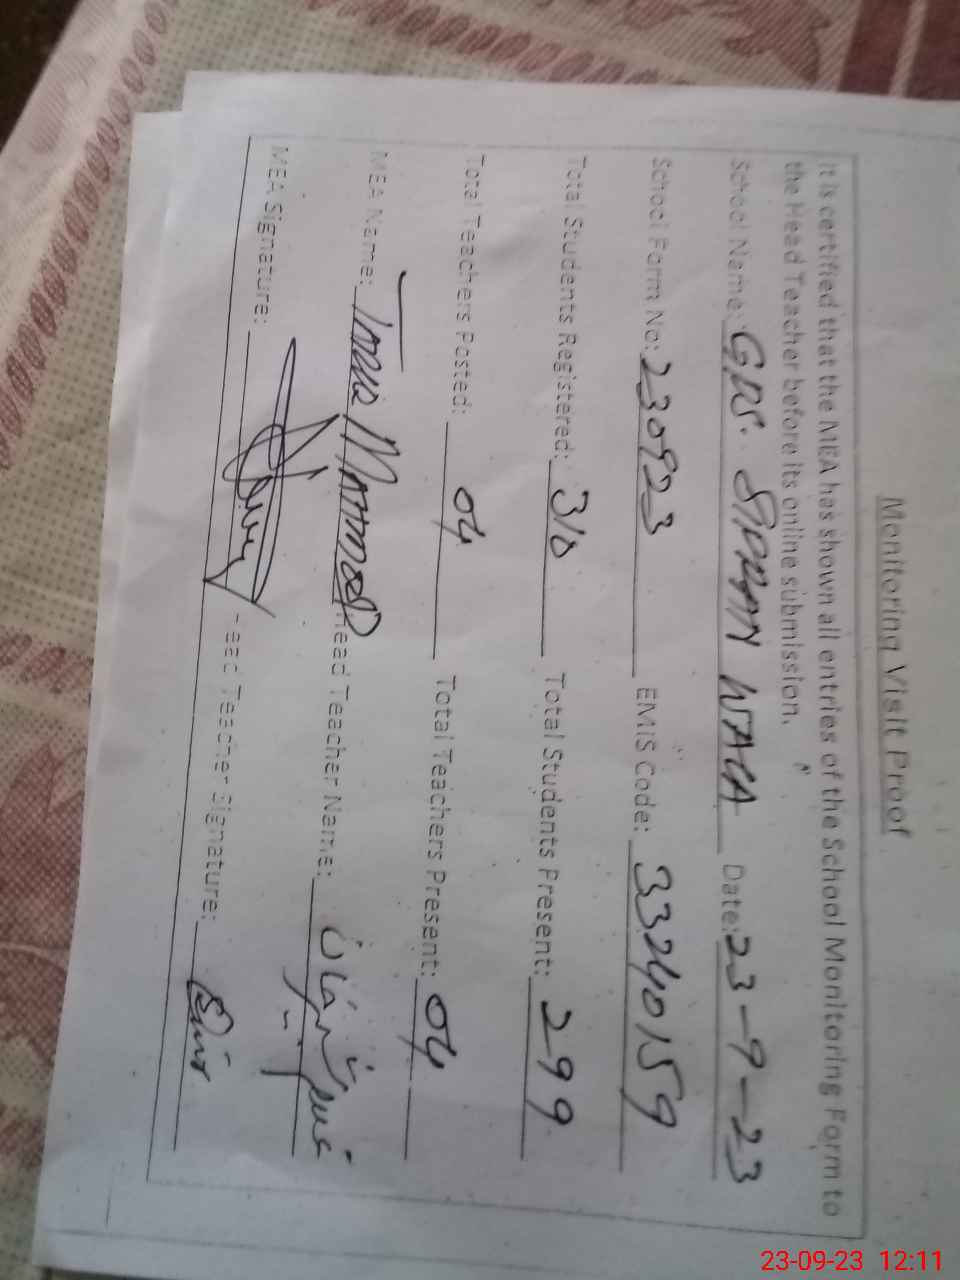 Monitoring Visit Proof
It is certified that the MEA has shown all entries of the School Monitoring Form to
the Head Teacher before its online submission.
School Name: GPS. WALA Date: 23-9-23
School Form No: 230923 EMIS Code: 33240159
Total Students Registered: 310 Total Students Present: 299
Total Teachers Posted: 04 Total Teachers Present: 04
MEA Name: Head Teacher Name:
MEA Signature: Head Teacher Signature:
23-09-23 12:11